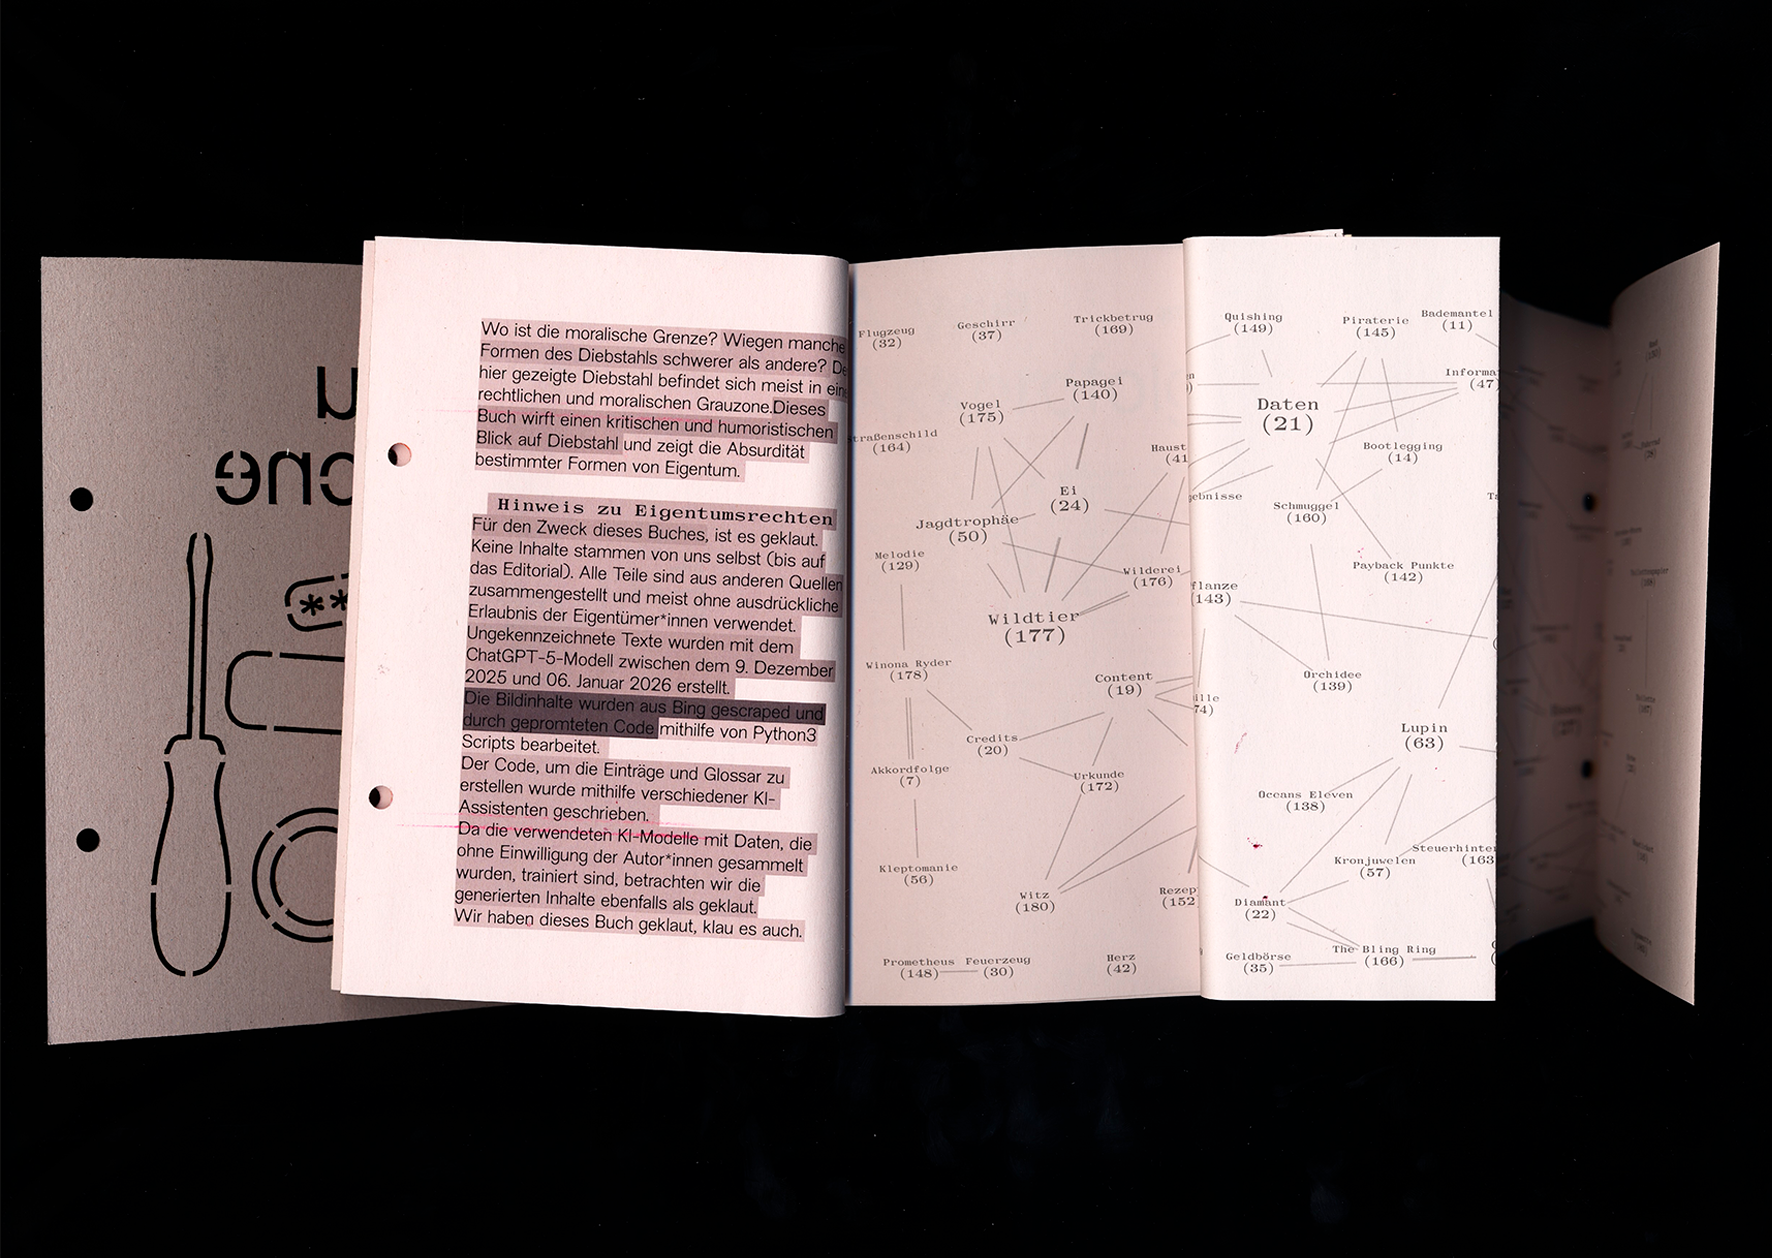 Wo ist die moralische Grenze? Wiegen manche
Formen des Diebstahls schwerer als andere?
hier gezeigte Diebstahl befindet sich meist in
rechtlichen und moralischen Grauzone.Dieses
Buch wirft einen kritischen und humoristischen
Blick auf Diebstahl und zeigt die Absurdität
bestimmter Formen von Eigentum.
Hinweis zu Eigentumsrechten
Für den Zweck dieses Buches, ist es geklaut.
Keine Inhalte stammen von uns selbst (bis auf
das Editorial). Alle Teile sind aus anderen Quellen
zusammengestellt und meist ohne ausdrückliche
Erlaubnis der Eigentümer*innen verwendet.
Ungekennzeichnete Texte wurden mit dem
ChatGPT-5-Modell zwischen dem 9. Dezember
2025 und 06. Januar 2026 erstellt.
Die Bildinhalte wurden aus Bing gescraped und
durch gepromteten Code mithilfe von Python3
Scripts bearbeitet.
Der Code, um die Einträge und Glossar zu
erstellen wurde mithilfe verschiedener KI-
Assistenten geschrieben.
Da die verwendeten KI-Modelle mit Daten, die
ohne Einwilligung der Autor*innen gesammelt
wurden, trainiert sind, betrachten wir die
generierten Inhalte ebenfalls als geklaut.
Wir haben dieses Buch geklaut, klau es auch.
Flugzeug
(32)
Geschirr
(37)
Trickbetrug
(169)
Papagei
(140)
Vogel
(175)
straßenschild
(164)
Haust
(41
Ei
(24)
Jagdtrophäe
(50)
Melodie
(129)
Wilderei
(176)
Wildtier
(177)
Winona Ryder
(178)
Content
(19)
Credits
(20)
Akkordfolge
(7)
Urkunde
(172)
Kleptomanie
(56)
Witz
(180)
Rezep
(152
Prometheus
(148)
Feuerzeug
(30)
Herz
(42)
Quishing
(149)
Piraterie
(145)
Bademantel
(11)
Informa
(47
Daten
(21)
Bootlegging
(14)
gebnisse
Schmuggel
(160)
Payback Punkte
(142)
flanze
(143)
Orchidee
(139)
ille
74)
Lupin
(63)
Oceans Eleven
(138)
Steuerhinter
(163
Kronjuwelen
(57)
Diamant
(22)
The Bling Ring
(166)
Geldbörse
(35)